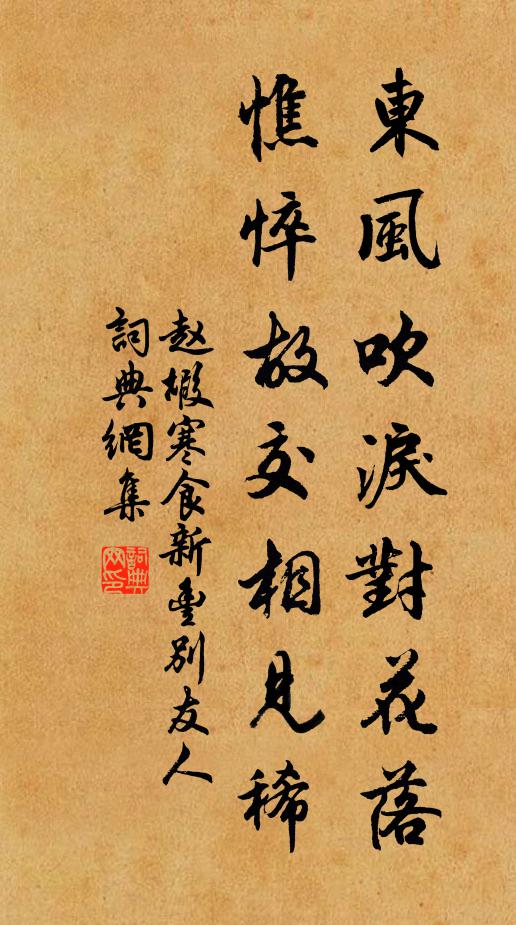 東風吹淚對花落
憔悴故交相見稀
赵嘏寒食新豊别友人
詞典網集
詞典
网印